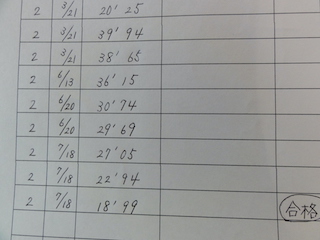 2 3/21 20' 25
2 3/21 39' 94
2 3/21 38' 65
2 6/13 36' 15
2 6/20 30' 74
2 6/20 29' 69
2 7/18 27' 05
2 7/18 22' 94
2 7/18 18' 99 合格